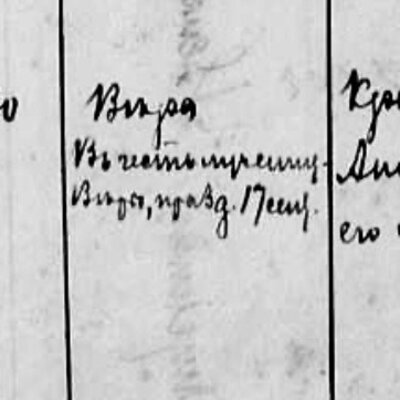 Вѣра
Въ честь мучениц-
Вѣры, празд. 17 сент.
Кре
его